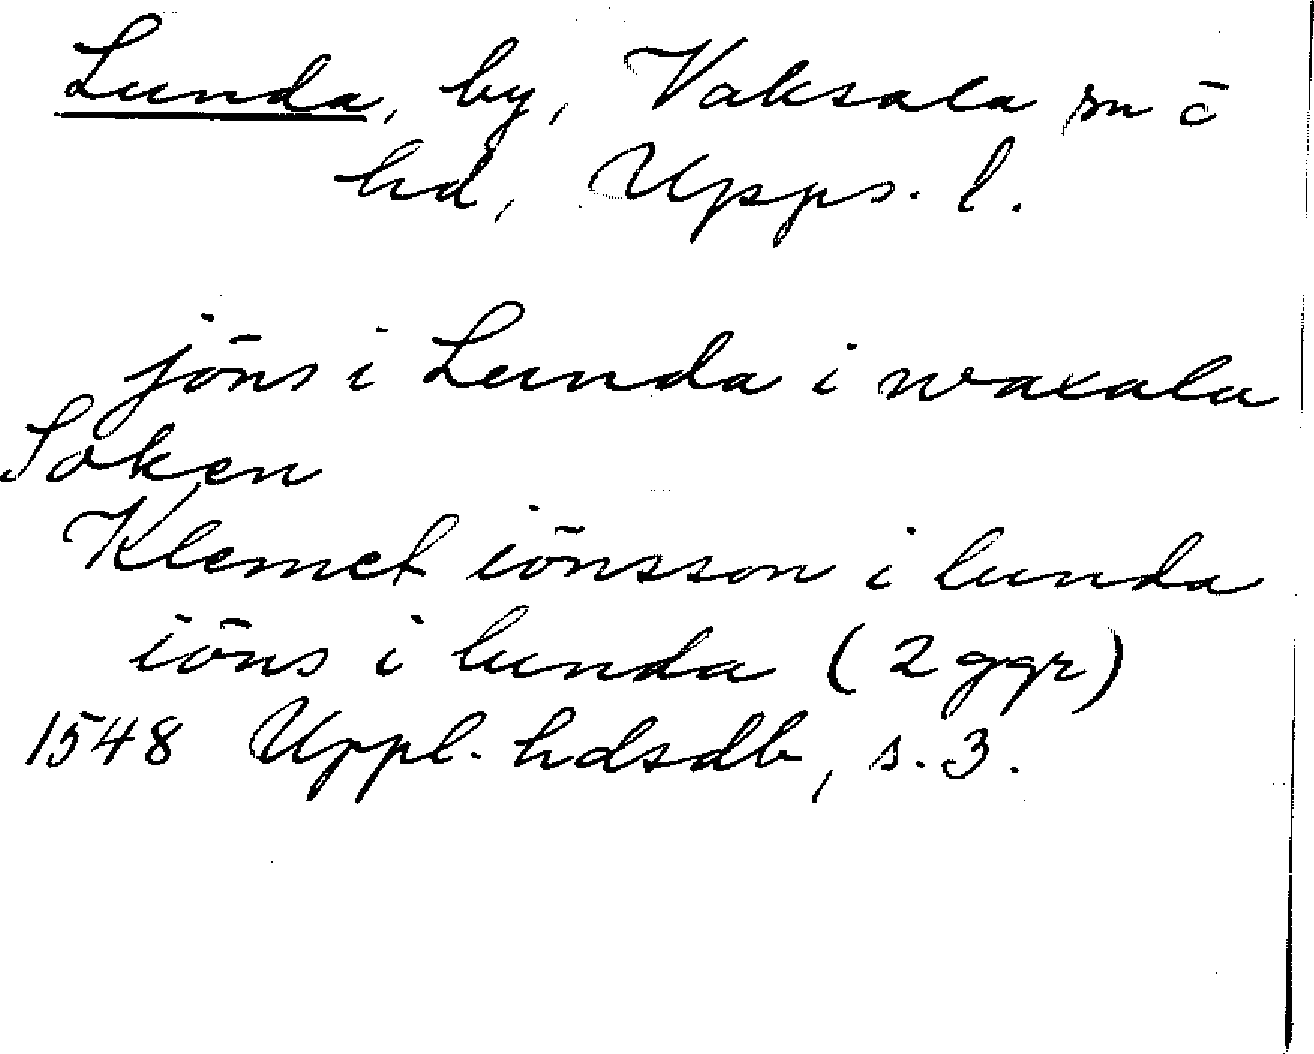 Lunda, by, Vaksala sn o
hd, Upps. l.
jöns i Lunda i waxala
Soken
Klemet iönsson i lunda
iöns i lunda (2 ggr)
1548 Uppl. hdsdb, s. 3.